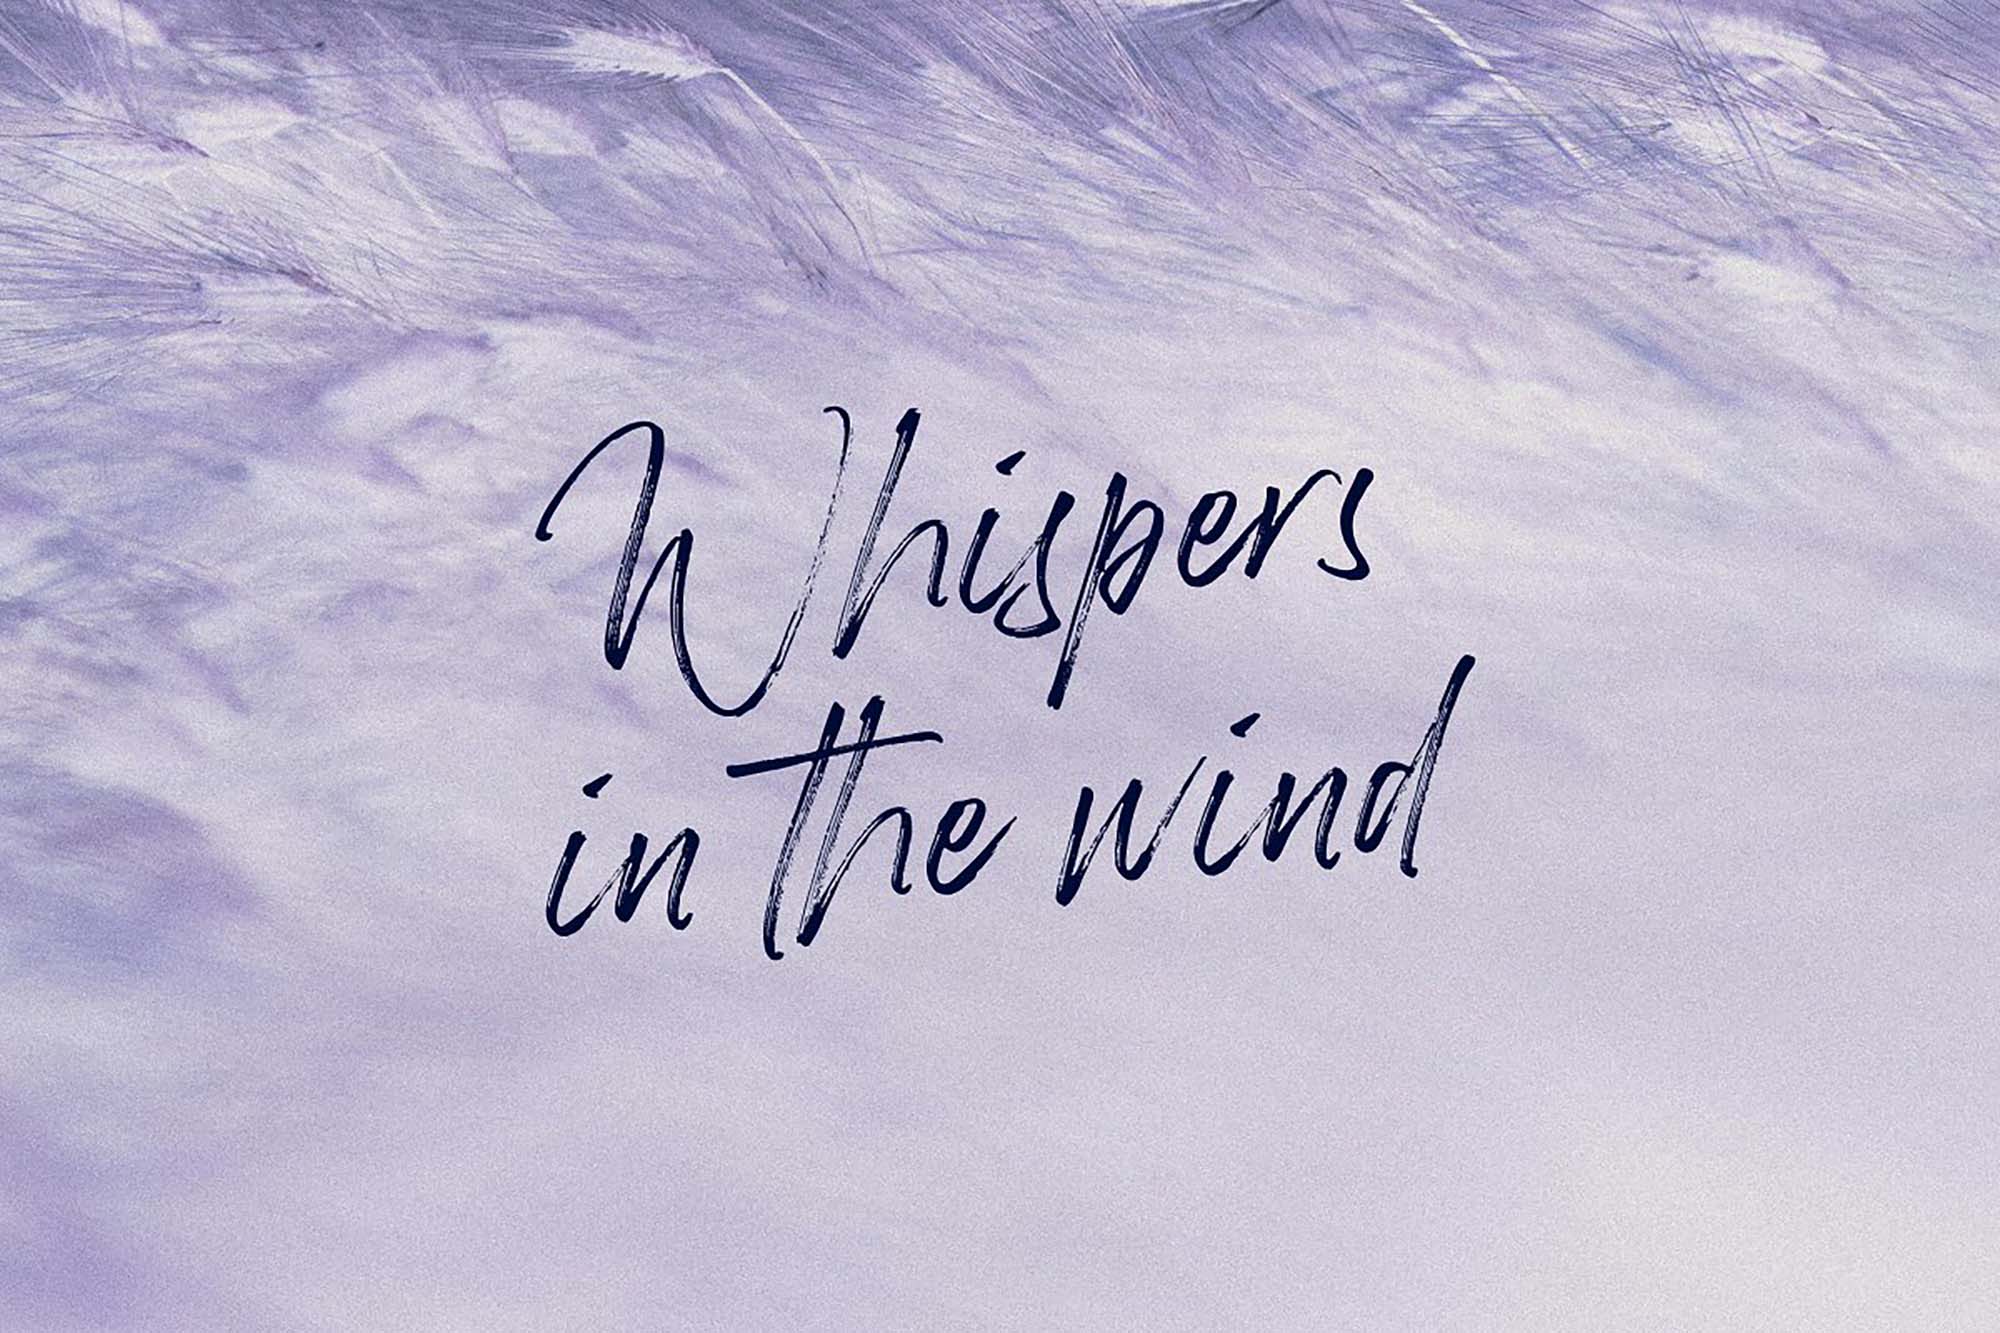 Whispers
in the wind